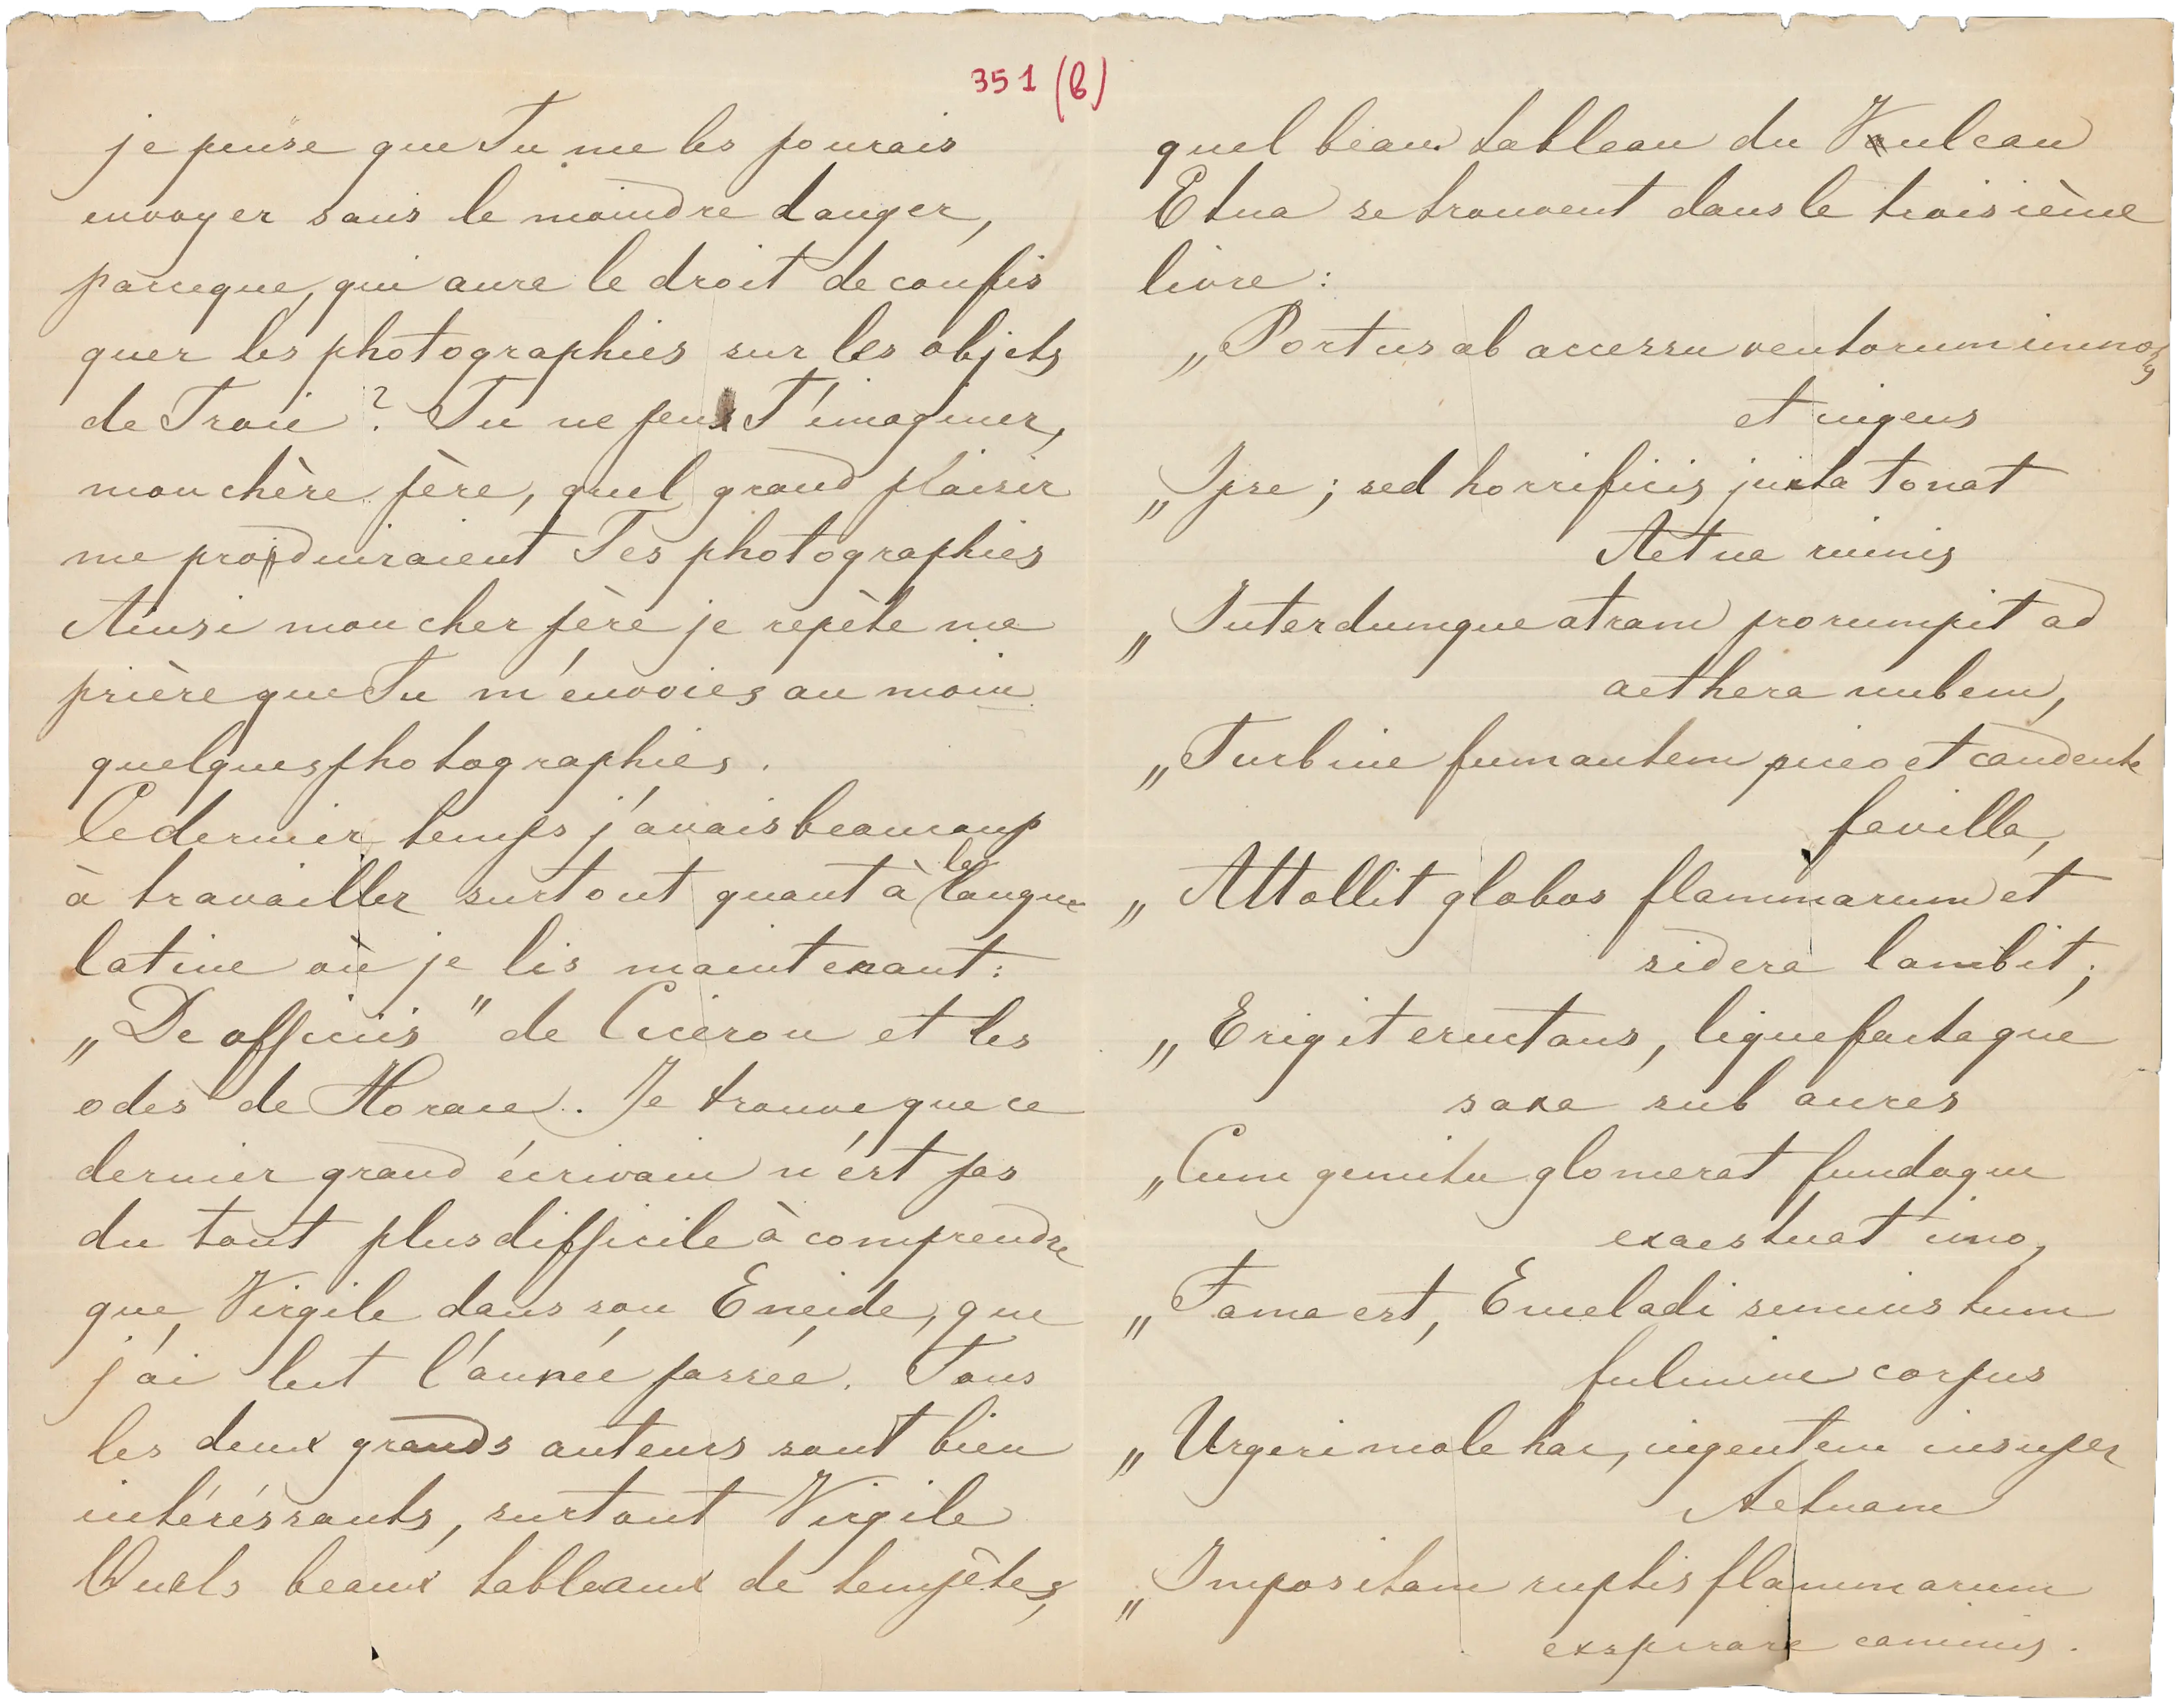 351 (b)
je pense que Tu me les pourais
envoyer sans le moindre danger,
parceque, qui aure le droit de confis
quer les photographies sur les objets
de Troie? Tu ne peux T'imaginer,
mon chère père, quel grand plaisir
me produiraient Tes photographies
Ainsi mon cher père je repète ma
prière que Tu m'envoies au moin
quelques photographies.
Ce dernier temps j'avais beaucoup
à travailler surtout quant à la langue
latine où je lis maintenant:
„De officiis" de Ciceron et les
odes de Horace. Je trouve que ce
dernier grand écrivain n'est pas
du tout plus difficile à comprendre
que Virgile dans son Eneide, que
j'ai lut l'année passée. Tous
les deux grands auteurs sont bien
intéréssants, surtout Virgile
Quels beaux tableaux de tempêtes,
quel beau tableau du Vulcan
Etna se trouvent dans le troisième
livre:
„Portus ab accessu ventorum immotus
et ingens
„Ipse; sed horrificis juxta tonat
Aetna ruinis
„Interdumque atram prorumpit ad
aethera nubem,
„Turbine fumantem piceo et candente
favilla,
„Attollit globos flammarum et
sidera lambit;
„Erigit eructans, liquefactaque
saxa sub auras
„Cum gemitu glomerat fundoque
exaestuat imo,
„Fama est, Enceladi semiustum
fulmine corpus
„Urgeri mole hac, ingentem insuper
Aetnam
„Impositam ruptis flammarum
exspirare caminis.